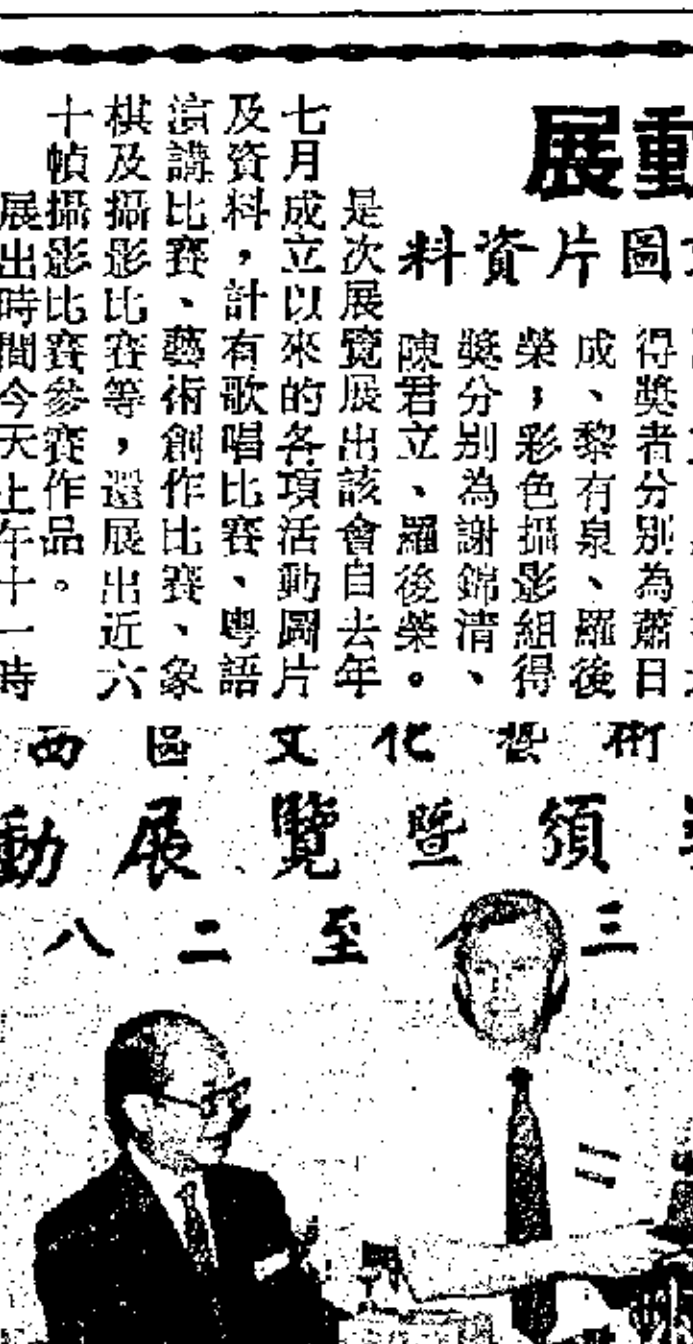 動展
圖片資料
得獎者分別為蕭日
成、黎有泉、羅後
榮；彩色攝影組得
獎分別為謝錦清、
陳君立、羅後榮。
是次展覽展出該會自去年
七月成立以來的各項活動圖片
及資料，計有歌唱比賽、粵語
演講比賽、藝術創作比賽、象
棋及攝影比賽等，還展出近六
十幀攝影比賽參賽作品。
展出時間今天上午十一時
西區文化藝術
動展覽暨頒
八二至三